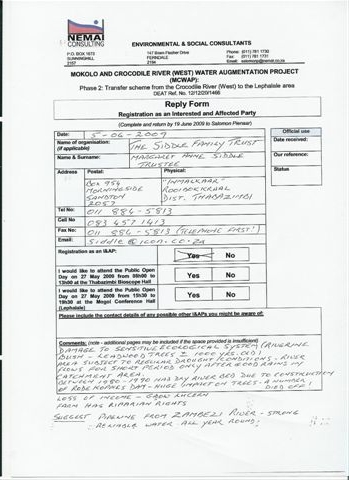 NEMAI
CONSULTING
ENVIRONMENTAL & SOCIAL CONSULTANTS
P.O. BOX 1673
SUNNINGHILL
2157
147 Bram Fischer Drive
FERNDALE
2194
Phone: (011) 781 1730
Fax: (011) 781 1731
Email:
MOKOLO AND CROCODILE RIVER (WEST) WATER AUGMENTATION PROJECT
(MCWAP):
Phase 2: Transfer scheme from the Crocodile River (West) to the Lephalale area
DEAT Ref. No. 12/12/20/1466
Reply Form
Registration as an Interested and Affected Party
(Complete and return by 19 June 2009 to Salomon Pienaar)
Date: 5-06-2009
Official use
Name of organisation: THE SIDDLE FAMILY TRUST
(if applicable)
Date received:
Name & Surname: MARGARET ANNE SIDDLE
TRUSTEE
Our reference:
Address
Postal:
Physical:
Status
BOX 954
MORNINGSIDE
SANDTON
2057
ROOIBOKKRAAL
DIST. THABAZIMBI
Tel No: 011 884-5813
Cell No 083 457 1413
Fax No: 011 884-5813 (TELEPHONE FIRST)
Email: siddle@icon.co.za
Registration as an I&AP:
Yes
No
I would like to attend the Public Open
Day on 27 May 2009 from 09h00 to
13h00 at the Thabazimbi Bioscope Hall
Yes
No
I would like to attend the Public Open
Day on 27 May 2009 from 15h30 to
19h30 at the Mogol Conference Hall
(Lephalale)
Yes
No
Please include the contact details of any possible other I&APs you might be aware of:
Comments: (note - additional pages may be included if the space provided is insufficient)
DAMAGE TO SENSITIVE ECOLOGICAL SYSTEM (RIVERINE
BUSH - LEADWOOD TREES ± 1000 YRS. OLD)
AREA SUBJECT TO REGULAR DROUGHT CONDITIONS - RIVER
FLOWS FOR SHORT PERIOD ONLY AFTER GOOD RAINS IN
CATCHMENT AREA.
BETWEEN 1980-1990 HAD DRY RIVER BED DUE TO CONSTRUCTION
OF ROODEKOPJES DAM - HUGE IMPACT ON TREES - A NUMBER
DIED OFF!
LOSS OF INCOME - GROW LUCERN
FARM HAS RIPARIAN RIGHTS
SUGGEST PIPELINE FROM ZAMBEZI RIVER - STRONG
RELIABLE WATER ALL YEAR ROUND.